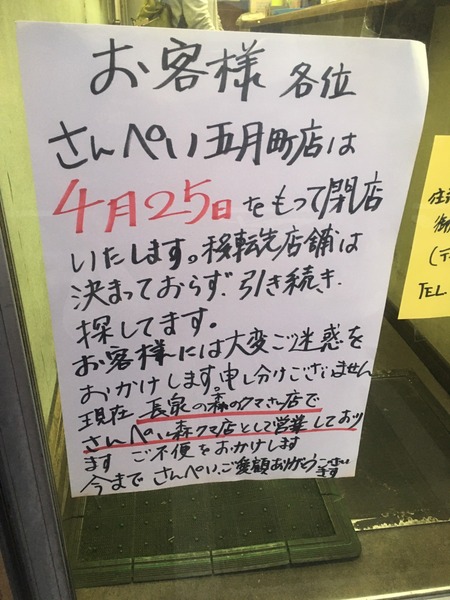 お客様 各位
さんぺい五月町店は
4月25日をもって閉店
いたします。移転先店舗は
決まっておらず、引き続き、
探してます。
お客様には大変ご迷惑を
おかけします。申し分けございません
現在 長泉の森のクマさん店で
さんぺい森クマ店として営業しており
ます ご不便をおかけします
今まで さんぺい、ご愛顧ありがとうござい
ます
TEL